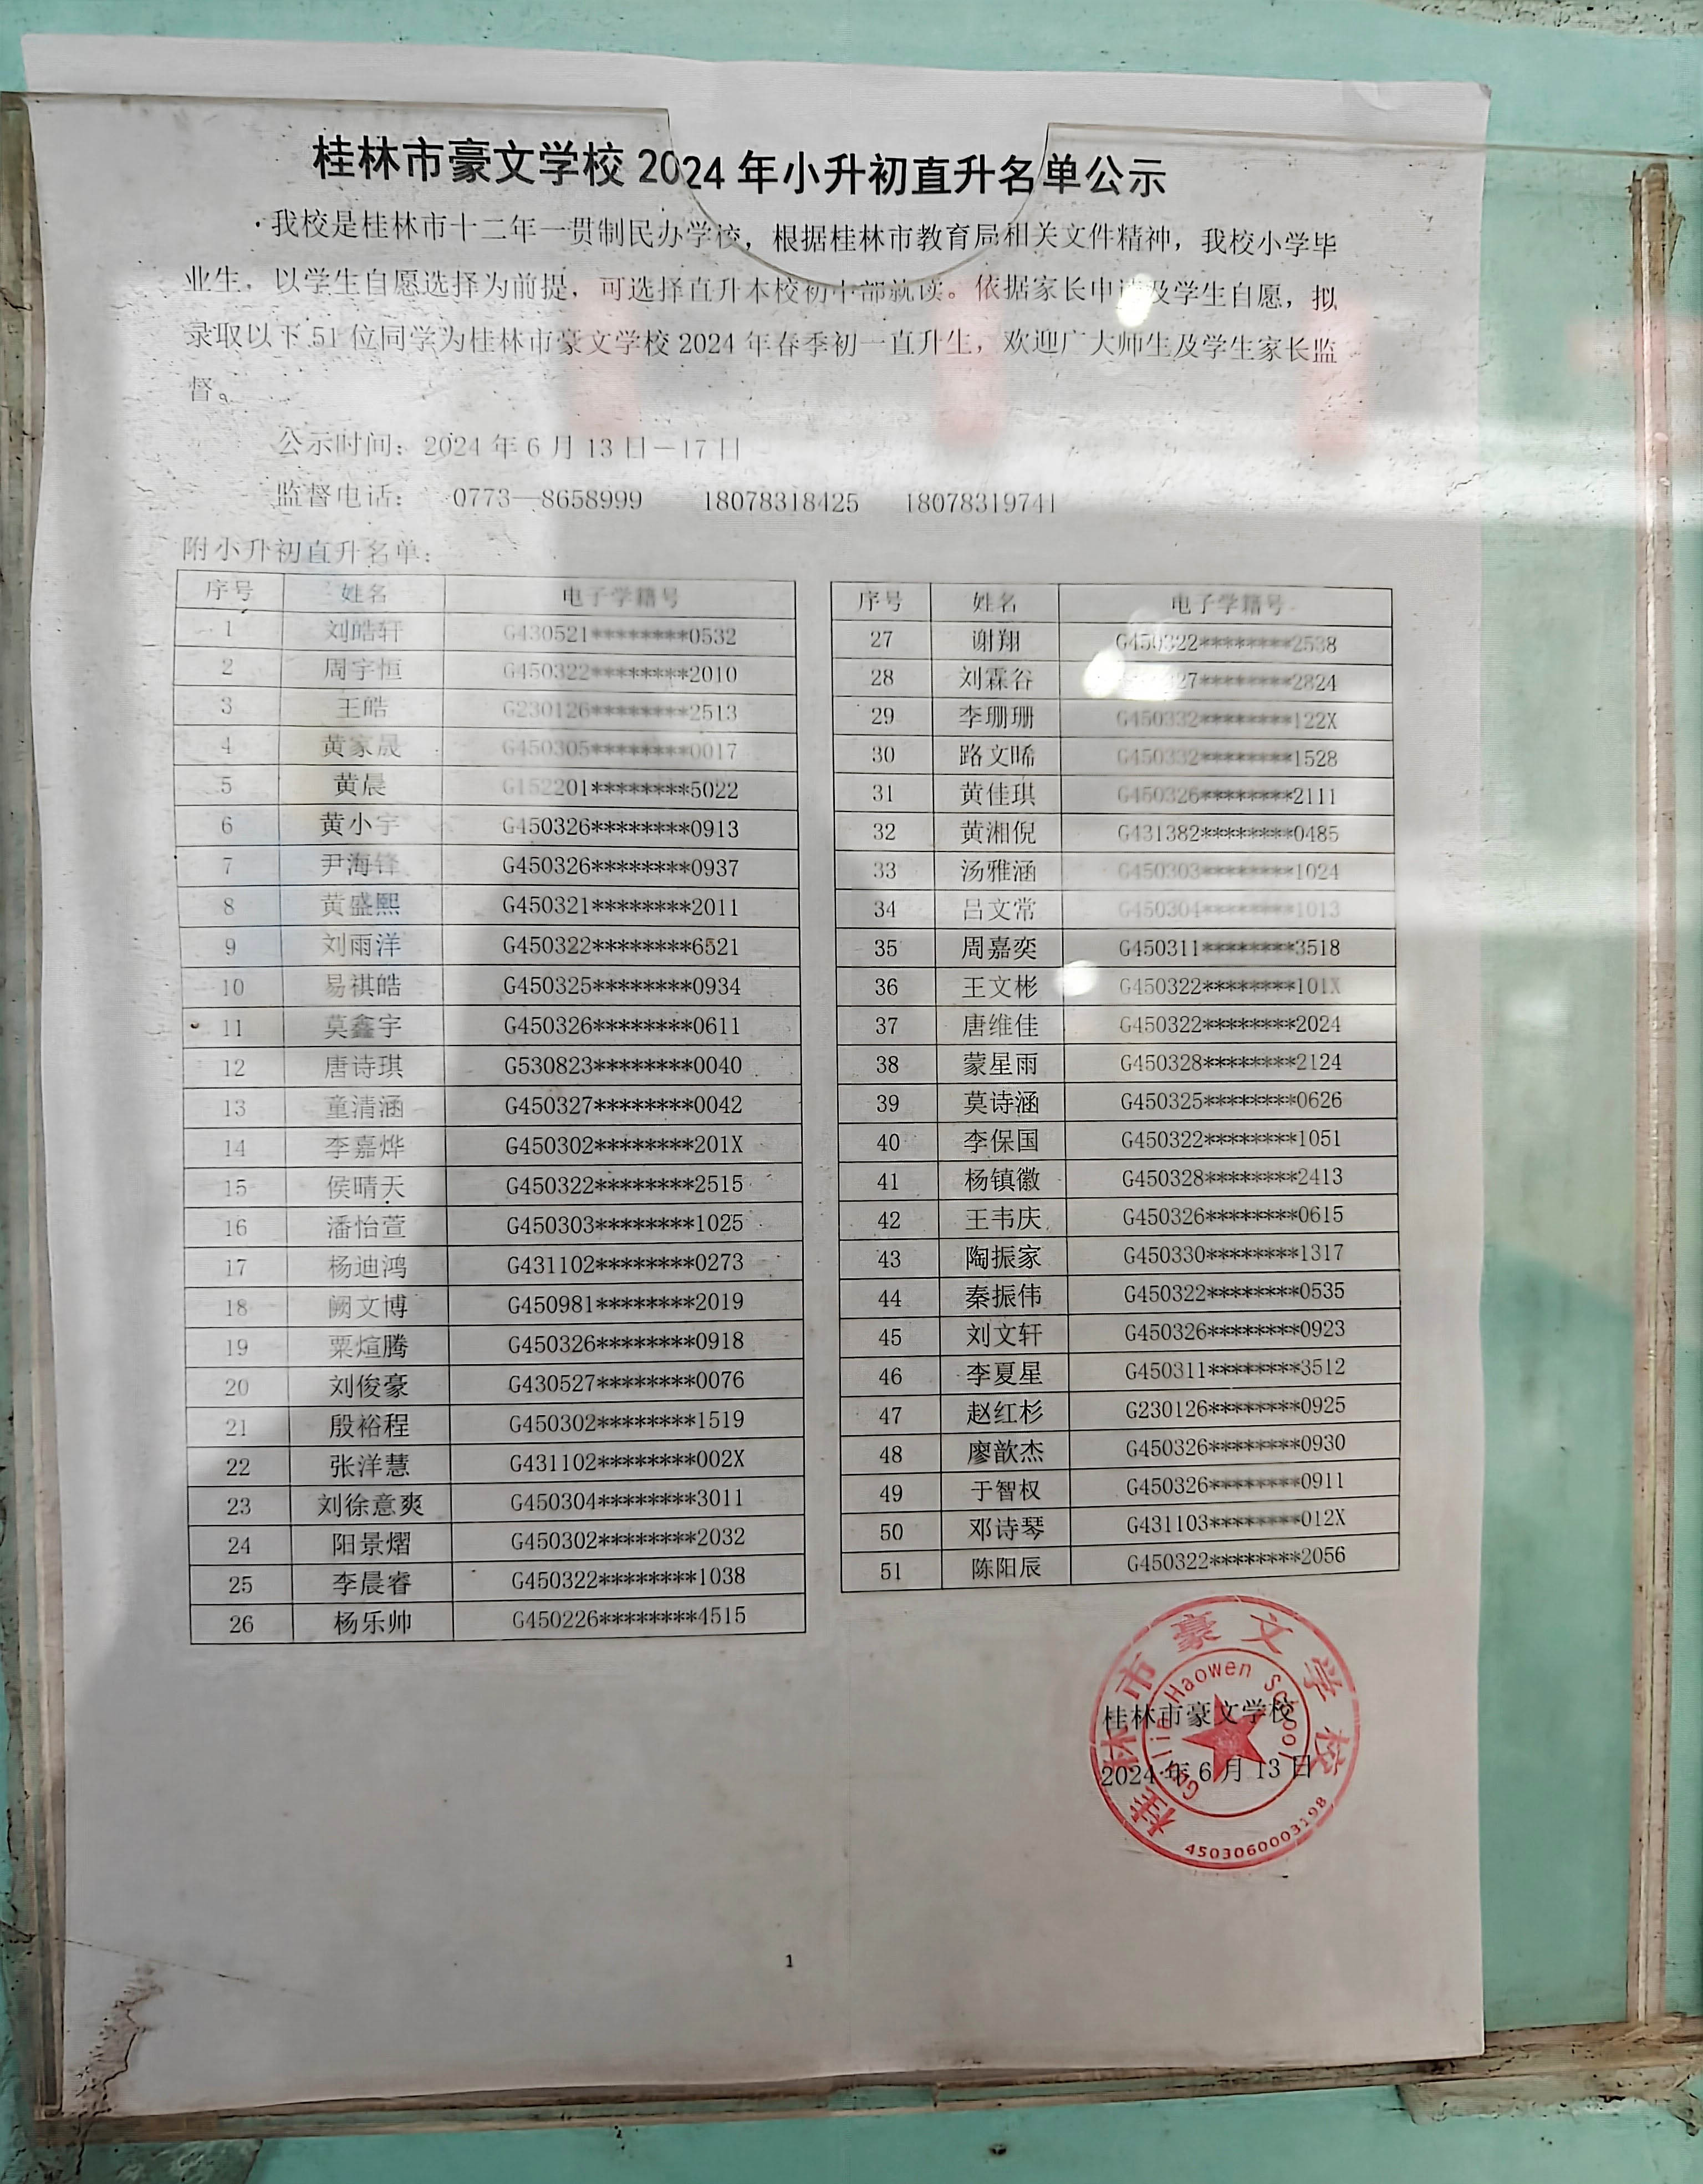 桂林市豪文学校 2024 年小升初直升名单公示
我校是桂林市十二年一贯制民办学校，根据桂林市教育局相关文件精神，我校小学毕
业生，以学生自愿选择为前提，可选择直升本校初中部就读。依据家长申及学生自愿，拟
录取以下 51 位同学为桂林市豪文学校 2024 年春季初一直升生，欢迎广大师生及学生家长监
督。
公示时间：2024 年 6 月 13 日—17 日
监督电话： 0773—8658999 18078318425 18078319741
附小升初直升名单：
序号 姓名 电子学籍号
1 刘皓轩 G430521********0532
2 周宇恒 G450322********2010
3 王皓 G230126********2513
4 黄家晟 G450305********0017
5 黄晨 G152201********5022
6 黄小宇 G450326********0913
7 尹海锋 G450326********0937
8 黄盛熙 G450321********2011
9 刘雨洋 G450322********6521
10 易祺皓 G450325********0934
11 莫鑫宇 G450326********0611
12 唐诗琪 G530823********0040
13 童清涵 G450327********0042
14 李嘉烨 G450302********201X
15 侯晴天 G450322********2515
16 潘怡萱 G450303********1025
17 杨迪鸿 G431102********0273
18 阙文博 G450981********2019
19 粟煊腾 G450326********0918
20 刘俊豪 G430527********0076
21 殷裕程 G450302********1519
22 张洋慧 G431102********002X
23 刘徐意爽 G450304********3011
24 阳景熠 G450302********2032
25 李晨睿 G450322********1038
26 杨乐帅 G450226********4515
序号 姓名 电子学籍号
27 谢翔 G450322********2538
28 刘霖谷 27********2824
29 李珊珊 G450332********122X
30 路文晞 G450332********1528
31 黄佳琪 G450326********2111
32 黄湘倪 G431382********0485
33 汤雅涵 G450303********1024
34 吕文常 G450304********1013
35 周嘉奕 G450311********3518
36 王文彬 G450322********101X
37 唐维佳 G450322********2024
38 蒙星雨 G450328********2124
39 莫诗涵 G450325********0626
40 李保国 G450322********1051
41 杨镇徽 G450328********2413
42 王韦庆 G450326********0615
43 陶振家 G450330********1317
44 秦振伟 G450322********0535
45 刘文轩 G450326********0923
46 李夏星 G450311********3512
47 赵红杉 G230126********0925
48 廖歆杰 G450326********0930
49 于智权 G450326********0911
50 邓诗琴 G431103********012X
51 陈阳辰 G450322********2056
桂林市豪文学校
2024 年 6 月 13 日
桂林市豪文学校
Guilin Haowen School
4503060003198
1